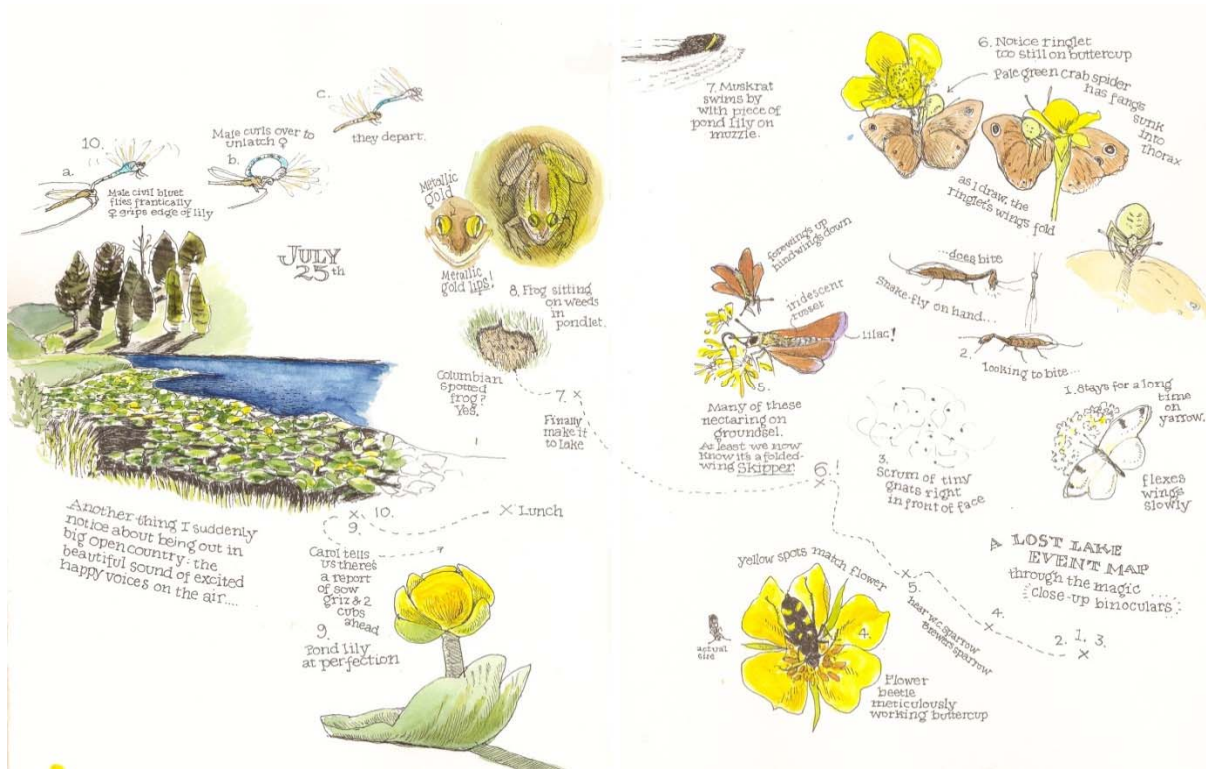 c.
they depart.
10.
a.
Male civil bluet
flies frantically
♀ grips edge of lily
Male curls over to
unlatch ♀
b.
JULY
25th
Metallic
gold
Metallic
gold lips!
8. Frog sitting
on weeds
in
pondlet.
Columbian
spotted
frog?
Yes.
7. x
Finally
make it
to Lake
Another thing I suddenly
notice about being out in
big open country: the
beautiful sound of excited
happy voices on the air....
x 10.
9.
x Lunch
Carol tells
us there's
a report
of sow
griz & 2
cubs
ahead
9.
Pond lily
at perfection
7. Muskrat
swims by
with piece of
pond lily on
muzzle.
6. Notice ringlet
too still on buttercup
Pale green crab spider
has fangs
sunk
into
Thorax
as I draw, the
ringlet's wings fold
forewings up
hindwings down
iridescent
russet
lilac!
5.
Many of these
nectaring on
groundsel.
At least we now
know it's a folded-
wing Skipper
...does bite
Snake-fly on hand...
2.
looking to bite...
3.
Scrum of tiny
gnats right
in front of face
1. Stays for a long
time
on
yarrow.
flexes
wings
slowly
6.
x
A LOST LAKE
EVENT MAP
through the magic
close-up binoculars
x
5.
hear w.c. sparrow
Brewers sparrow
4.
x
2. 1. 3.
x
yellow spots match flower
4.
actual
size
Flower
beetle
meticulously
working buttercup